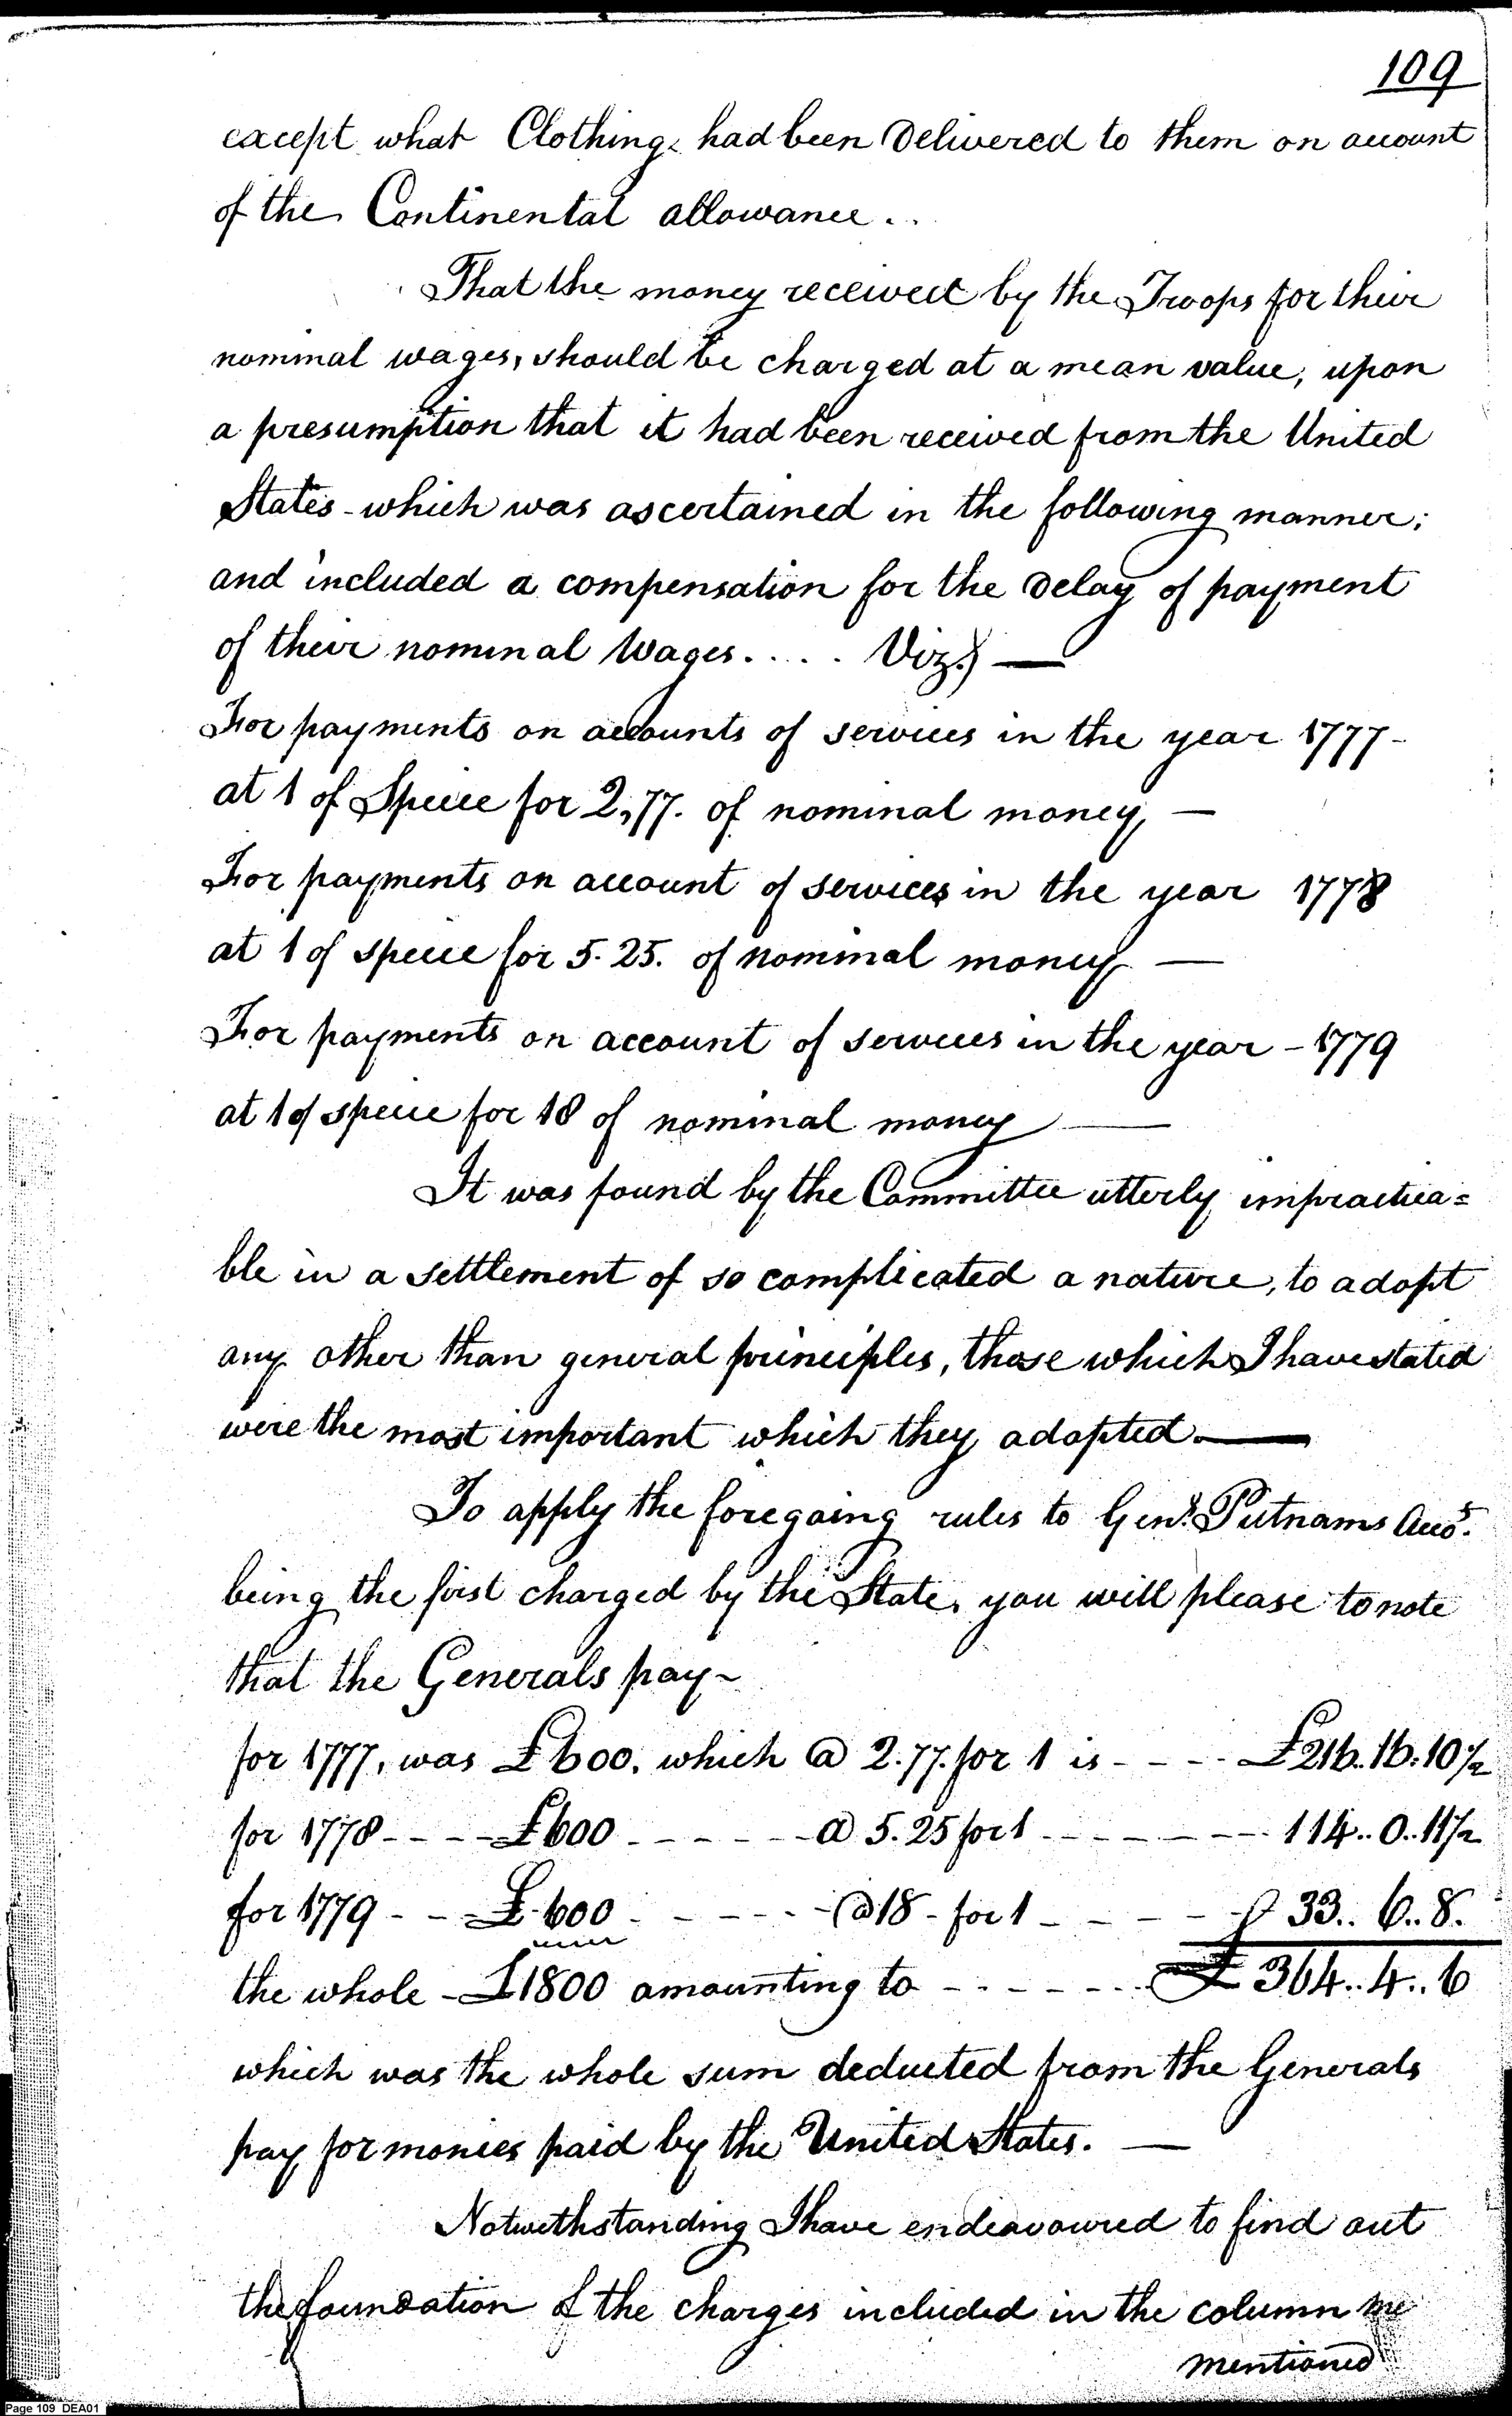 109
except what Clothing had been Delivered to them on account
of the Continental allowance..
That the money received by the Troops for their
nominal wages, should be charged at a mean value, upon
a presumption that it had been received from the United
States - which was ascertained in the following manner;
and included a compensation for the Delay of payment
of their nominal Wages. . . . . Viz.) —
For payments on accounts of services in the year 1777 -
at 1 of Specie for 2,77. of nominal money, —
For payments on account of services in the year 1778
at 1 of specie for 5.25. of nominal money —
For payments on account of services in the year - 1779
at 1 of specie for 18 of nominal money —
It was found by the Committee utterly impractica=
ble in a settlement of so complicated a nature, to adopt
any other than general principles, those which I have stated
were the most important which they adopted. —
To apply the foregoing rules to Genl. Putnams Accos.
being the first charged by the State, you will please to note
that the Generals pay ~
for 1777, was £600. which @ 2.77. for 1 is - - - - £216..16..10½
for 1778 - - - - £600 - - - - - - @ 5.25 for 1 - - - - - - - 114..0..11½
for 1779 - - - £600 - - - - - - @ 18 - for 1 - - - - - 33..6..8.
the whole - £1800 amounting to - - - - - - £364..4..6
which was the whole sum deducted from the Generals
pay for monies paid by the United States. —
Notwithstanding I have endeavoured to find out
the foundation of the charges included in the column me
mentioned
Page 109 DEA01